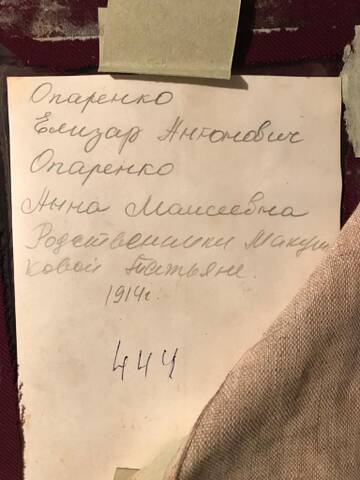 Опаренко
Елизар Антонович
Опаренко
Анна Моисеевна
Родственники Макуш
ковой Татьяне
1914г.
444